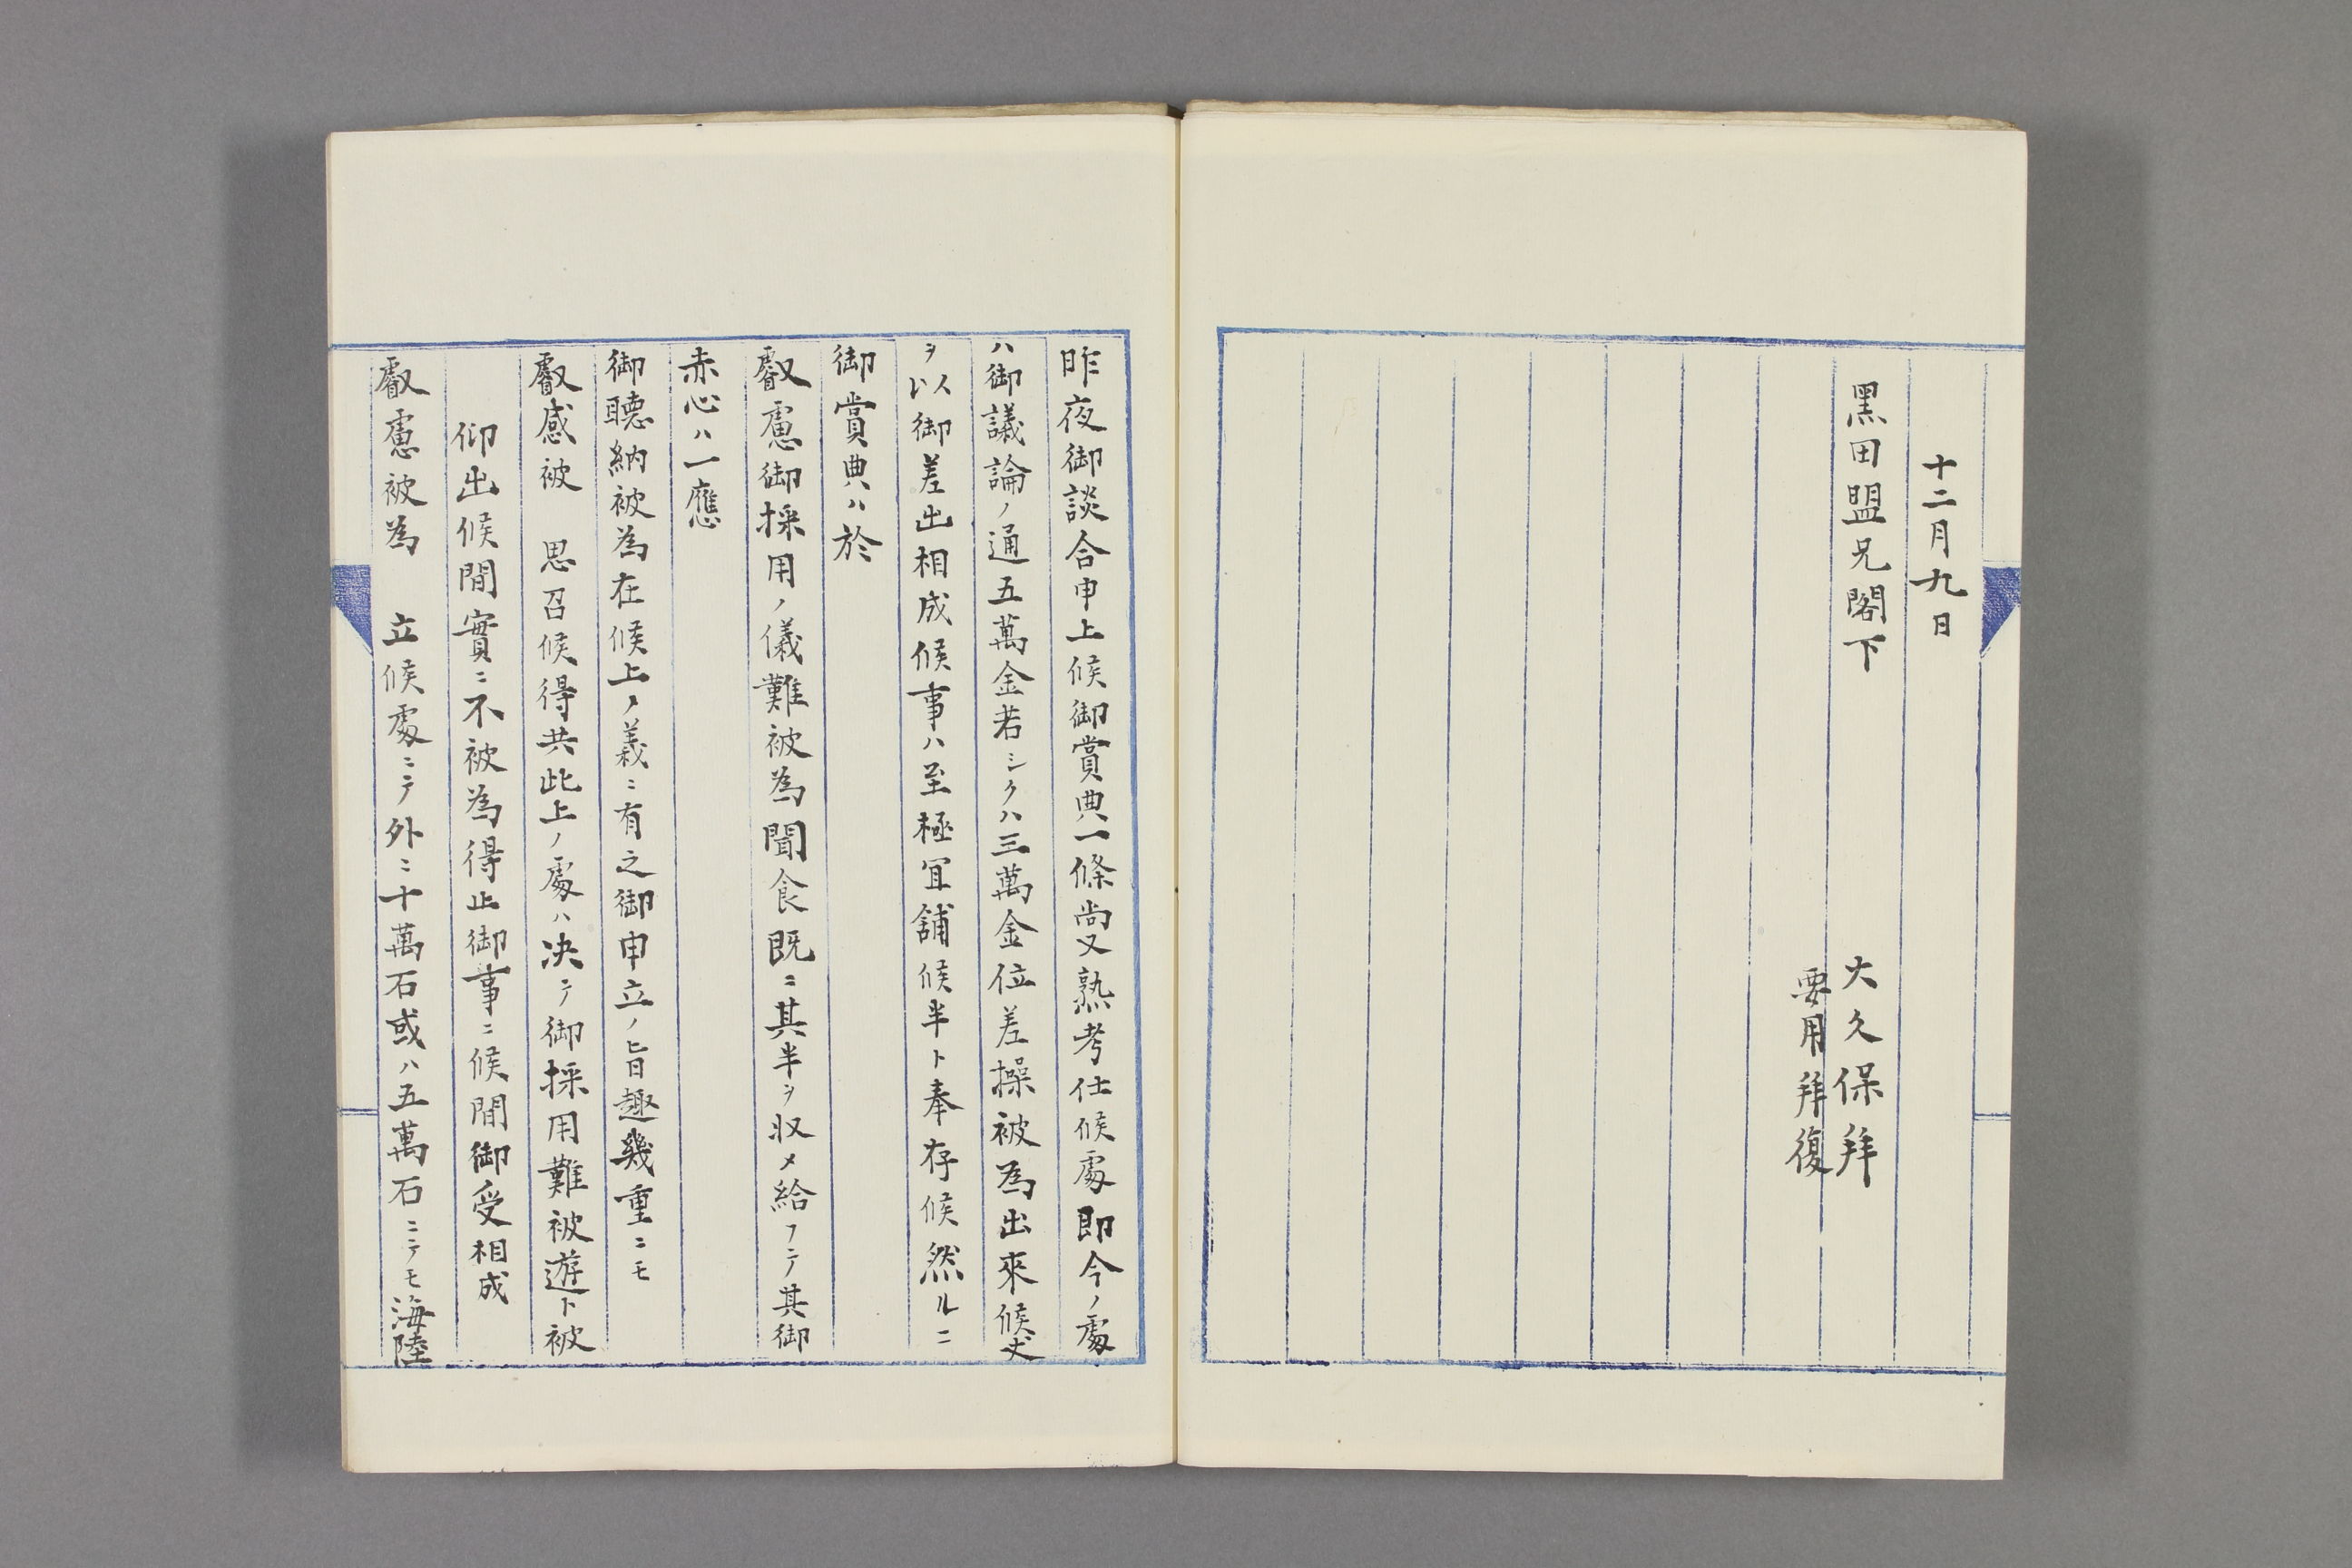 十二月九日
黑田盟兄閣下
大久保拜
要用拜復
昨夜御談合申上候御賞典一條尚又熟考仕候處即今ノ處
ハ御議論ノ通五萬金若シクハ三萬金位差操被為出來候丈
ヲ以御差出相成候事ハ至極冝舖候半ト奉存候然ルニ
御賞典ハ於
叡慮御採用ノ儀難被為聞食既ニ其半ヲ収メ給フニテ其御
赤心ハ一應
御聴納被為在候上ノ義ニ有之御申立ノ旨趣幾重ニモ
叡感被 思召候得共此上ノ處ハ决テ御採用難被遊ト被
仰出候間實ニ不被為得止御事ニ候間御受相成
叡慮被為 立候處ニテ外ニ十萬石或ハ五萬石ニテモ海陸